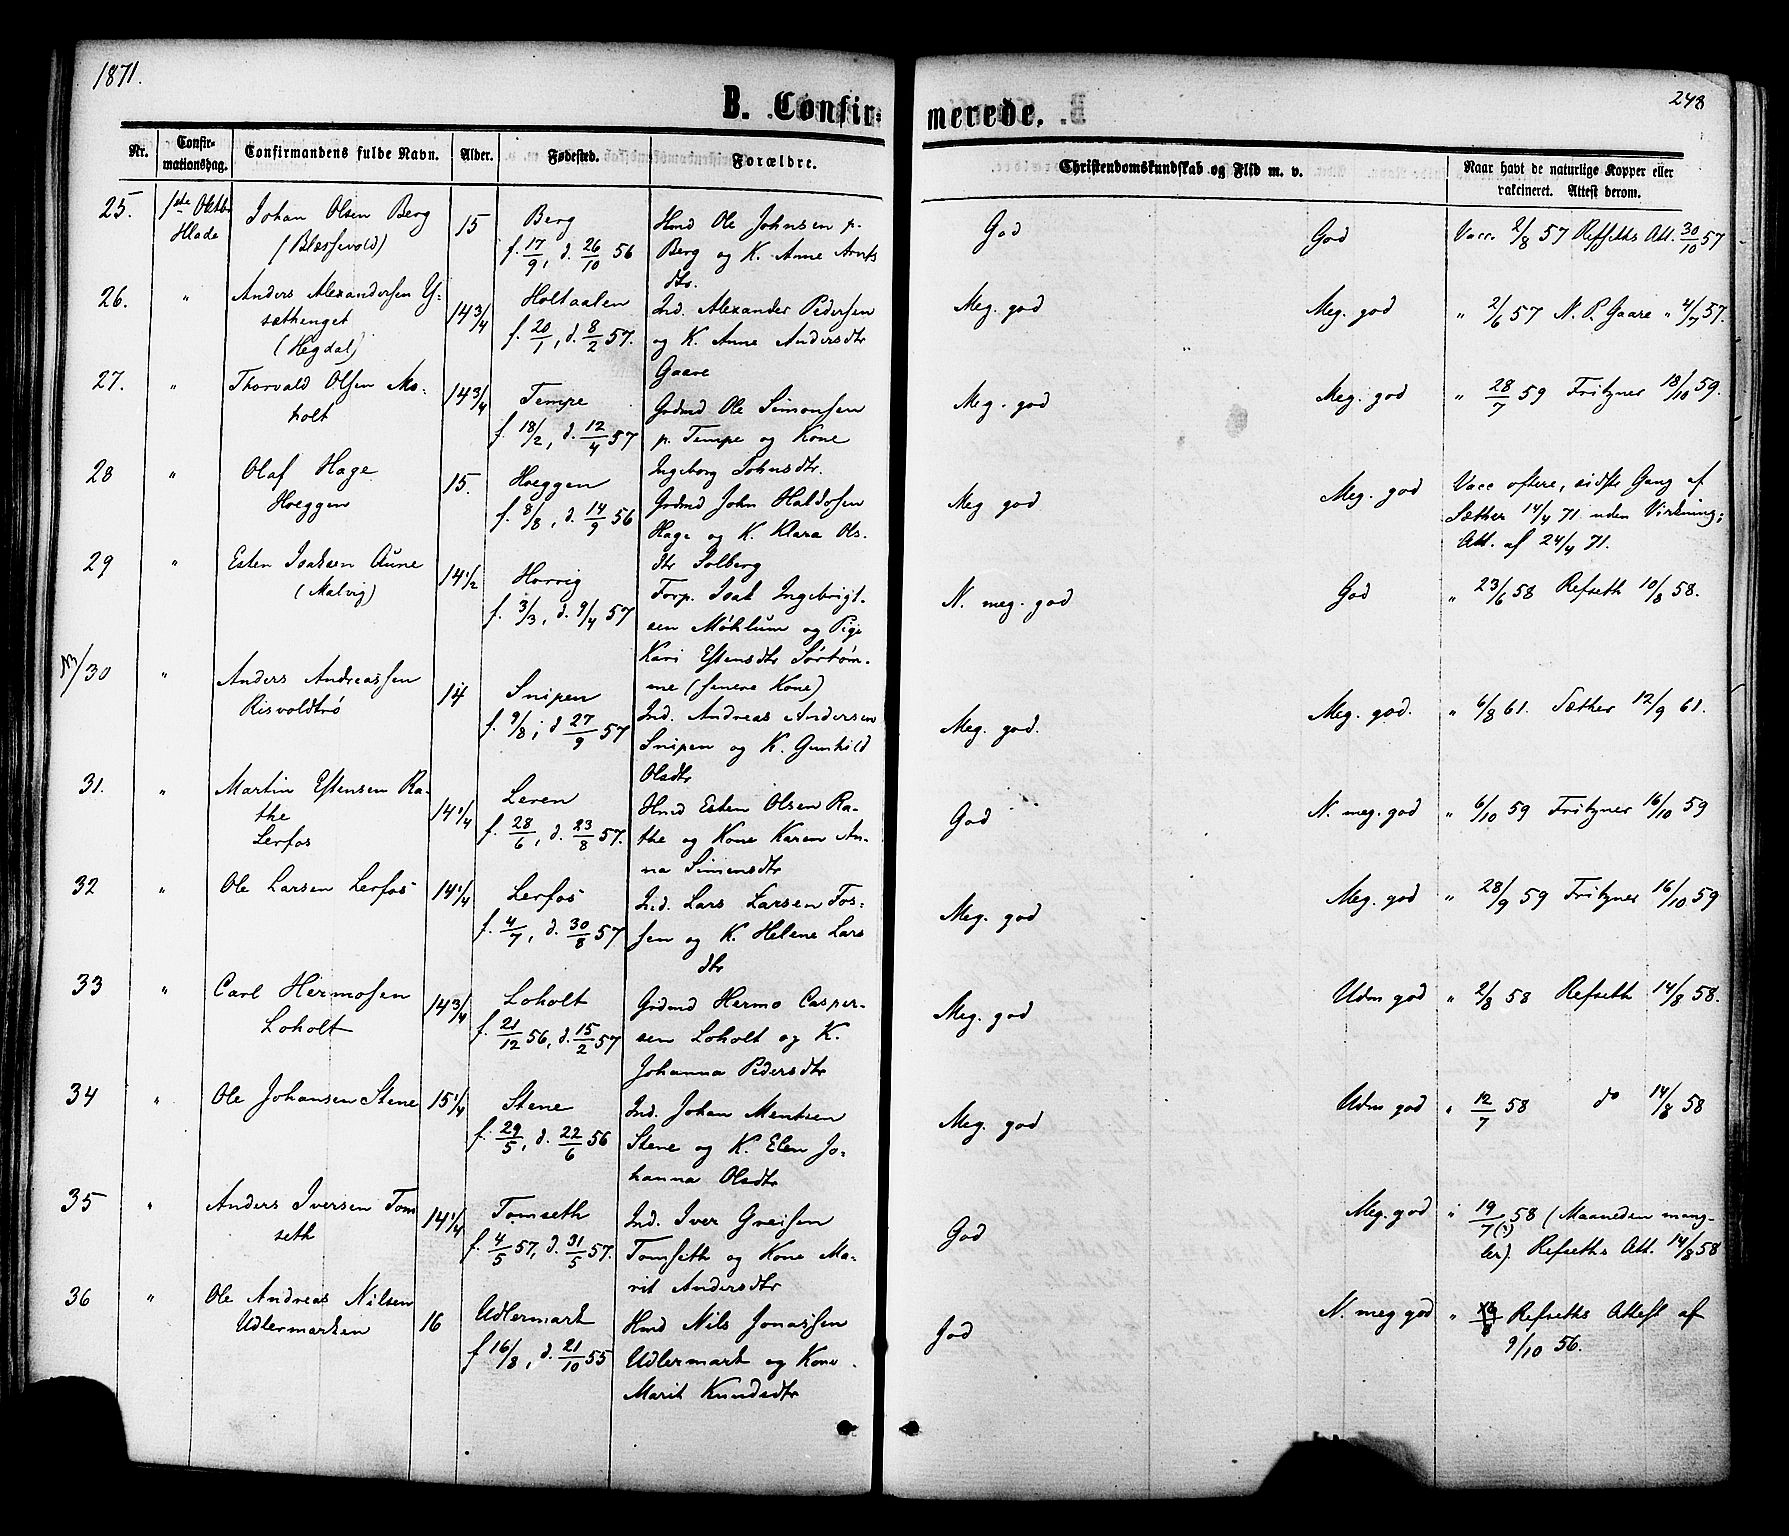 1871.
248
B. Confir-
merede.
Nr.
Confir-
mationsdag.
Confirmandens fulde Navn.
Alder.
Fødested.
Forældre.
Christendomskundskab og Flid m. v.
Naar havt de naturlige Kopper eller
vakcineret. Attest derom.
25. 1ste Oktb. Johan Olsen Berg 15 Berg Hmd Ole Johnsen p. God God Vacc. 2/8 57 Refseths Att. 30/10 57
Hlade f. 17/9, d. 26/10 56 Berg og K. Anne Arnts
dtr.
26. " Anders Alexandersen 14 3/4 Holtaalen Ind. Alexander Pedersen Meg. god Meg. god " 2/6 57 N. P. Gaare " 4/7 57.
sæthenget f. 20/1, d. 8/2 57. og K. Anne Andersdtr
(Hegdal) Gaare
27. " Thorvald Olsen Mo- 14 3/4 Tempe Grdmd Ole Simonsen Meg. god Meg. god " 28/7 59 Fritzner 18/10 59.
holt f. 18/2, d. 12/4 57 p. Tempe og Kone
Ingeborg Johnsdtr.
28 " Olaf Hage 15. Hoeggen Grdmd John Haldosen Meg god Meg. god Vacc oftere, sidste Gang af
Hoeggen f. 8/8, d. 14/9 56 Hage og K. Klara Ols- Sæther 14/4 71 uden Virkning;
dtr Solberg Att. af 24/4 71.
29 " Esten Isaksen Aune 14 1/2 Horrig Forp. Isak Ingebrigt- N. meg. god God " 23/6 58 Refseth 10/8 58.
(Malvig) f. 3/3, d. 9/4 57 sen Møhlum og Pige
Kari Estensdtr Sørtøm-
me (senere Kone)
30 " Anders Andreassen 14 Snipen Ind. Andreas Andersen Meg. god. Meg. god. " 6/8 61. Sæther 12/9 61.
Risvoldtrø f. 9/8, d. 27/9 57 Snipen og K. Gunhild
Olsdtr
31. " Martin Estensen Ra- 14 1/4 Leren Hmd Esten Olsen Ra- God N. meg. god " 6/10 59 Fritzner 16/10 59
the f. 28/6, d. 23/8 57. the og Kone Karen An-
Lerfos na Simensdtr
32 " Ole Larsen Lerfos 14 1/4 Lerfos Ind. Lars Larsen Fos- Meg. god Meg. god " 28/9 59 Fritzner 16/10 59
f. 4/7, d. 30/8 57 sen og K. Helene Lars
dtr
33 " Carl Hermosen 14 3/4 Loholt Grdmd Hermo Casper- Meg. god Udm god " 2/8 58 Refseth 14/8 58.
Loholt f. 21/12 56, d. 15/2 57 sen Loholt og K.
Johanna Pedersdtr
34 " Ole Johansen Stene 15 1/4 Stene Ind. Johan Mentsen Meg. god Udm god " 12/7 58 do 14/8 58
f. 29/5, d. 22/6 56 Stene og K. Elen Jo-
hanna Olsdtr
35 " Anders Iversen Tom 14 1/4 Tomseth Ind. Iver Greisen God Meg. god " 19/7(?) 58 (Maaneden mang-
seth f. 4/5 57, d. 31/5 57. Tomseth og Kone Ma- ler). Refseths Att. 14/8 58
rit Andersdtr
36 " Ole Andreas Nilsen 16 Udlermark Hmd Nils Jonassen God N. meg god " Refseths Attest af
Udlermarken f 16/8, d. 21/10 55 Udlermark og Kone 9/10 56.
Marit Knudsdtr